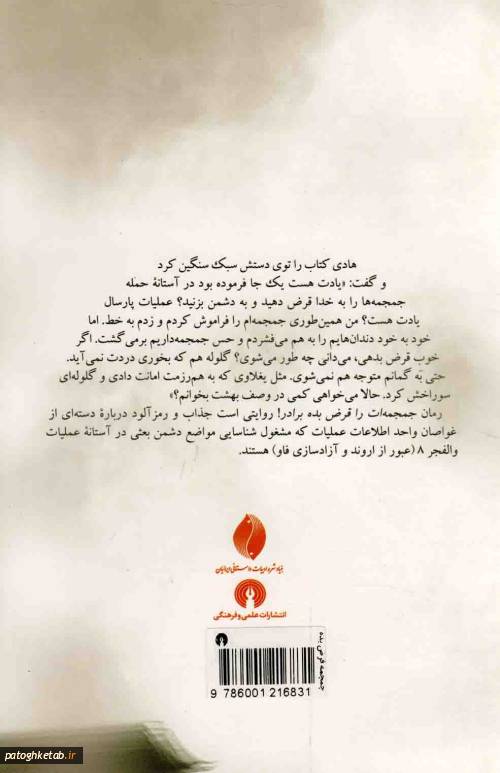 هادی کتاب را توی دستش سبک سنگین کرد
و گفت: «یادت هست یک جا فرموده بود در آستانهٔ حمله
جمجمه‌ها را به خدا قرض دهید و به دشمن بزنید؟ عملیات پارسال
یادت هست؟ من همین‌طوری جمجمه‌ام را فراموش کردم و زدم به خط. اما
خود به خود دندان‌هایم را به هم می‌فشردم و حس جمجمه‌داریم برمی‌گشت. اگر
خوب قرض بدهی، می‌دانی چه طور می‌شوی؟ گلوله هم که بخوری دردت نمی‌آید.
حتی به گمانم متوجه هم نمی‌شوی. مثل یغلاوی که به هم‌رزمت امانت دادی و گلوله‌ای
سوراخش کرد. حالا می‌خواهی کمی در وصف بهشت بخوانم؟»
رمان جمجمه‌ات را قرض بده برادر! روایتی است جذاب و رمزآلود دربارهٔ دسته‌ای از
غواصان واحد اطلاعات عملیات که مشغول شناسایی مواضع دشمن بعثی در آستانهٔ عملیات
والفجر ۸ (عبور از اروند و آزادسازی فاو) هستند.
بنیاد شعر و ادبیات داستانی ایرانیان
انتشارات علمی و فرهنگی
جمجمه قرض بده
9 786001 216831
patoghketab.ir